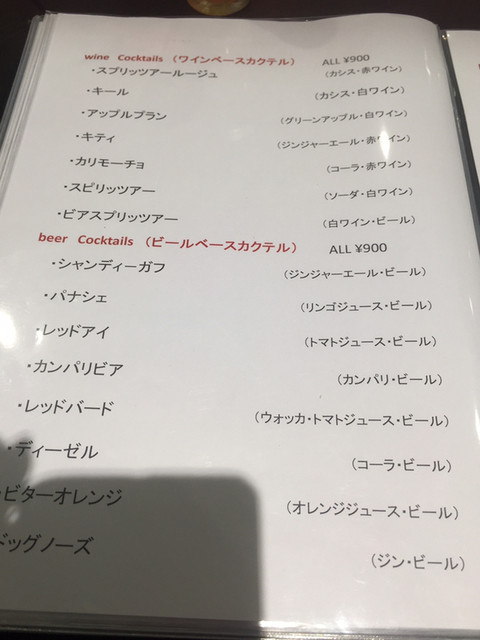 wine Cocktails （ワインベースカクテル） ALL ¥900
・スプリッツアールージュ （カシス・赤ワイン）
・キール （カシス・白ワイン）
・アップルブラン （グリーンアップル・白ワイン）
・キティ （ジンジャーエール・赤ワイン）
・カリモーチョ （コーラ・赤ワイン）
・スピリッツアー （ソーダ・白ワイン）
・ビアスプリッツアー （白ワイン・ビール）
beer Cocktails （ビールベースカクテル） ALL ¥900
・シャンディーガフ （ジンジャーエール・ビール）
・パナシェ （リンゴジュース・ビール）
・レッドアイ （トマトジュース・ビール）
・カンパリビア （カンパリ・ビール）
・レッドバード （ウォッカ・トマトジュース・ビール）
・ディーゼル （コーラ・ビール）
・ビターオレンジ （オレンジジュース・ビール）
ドッグノーズ （ジン・ビール）